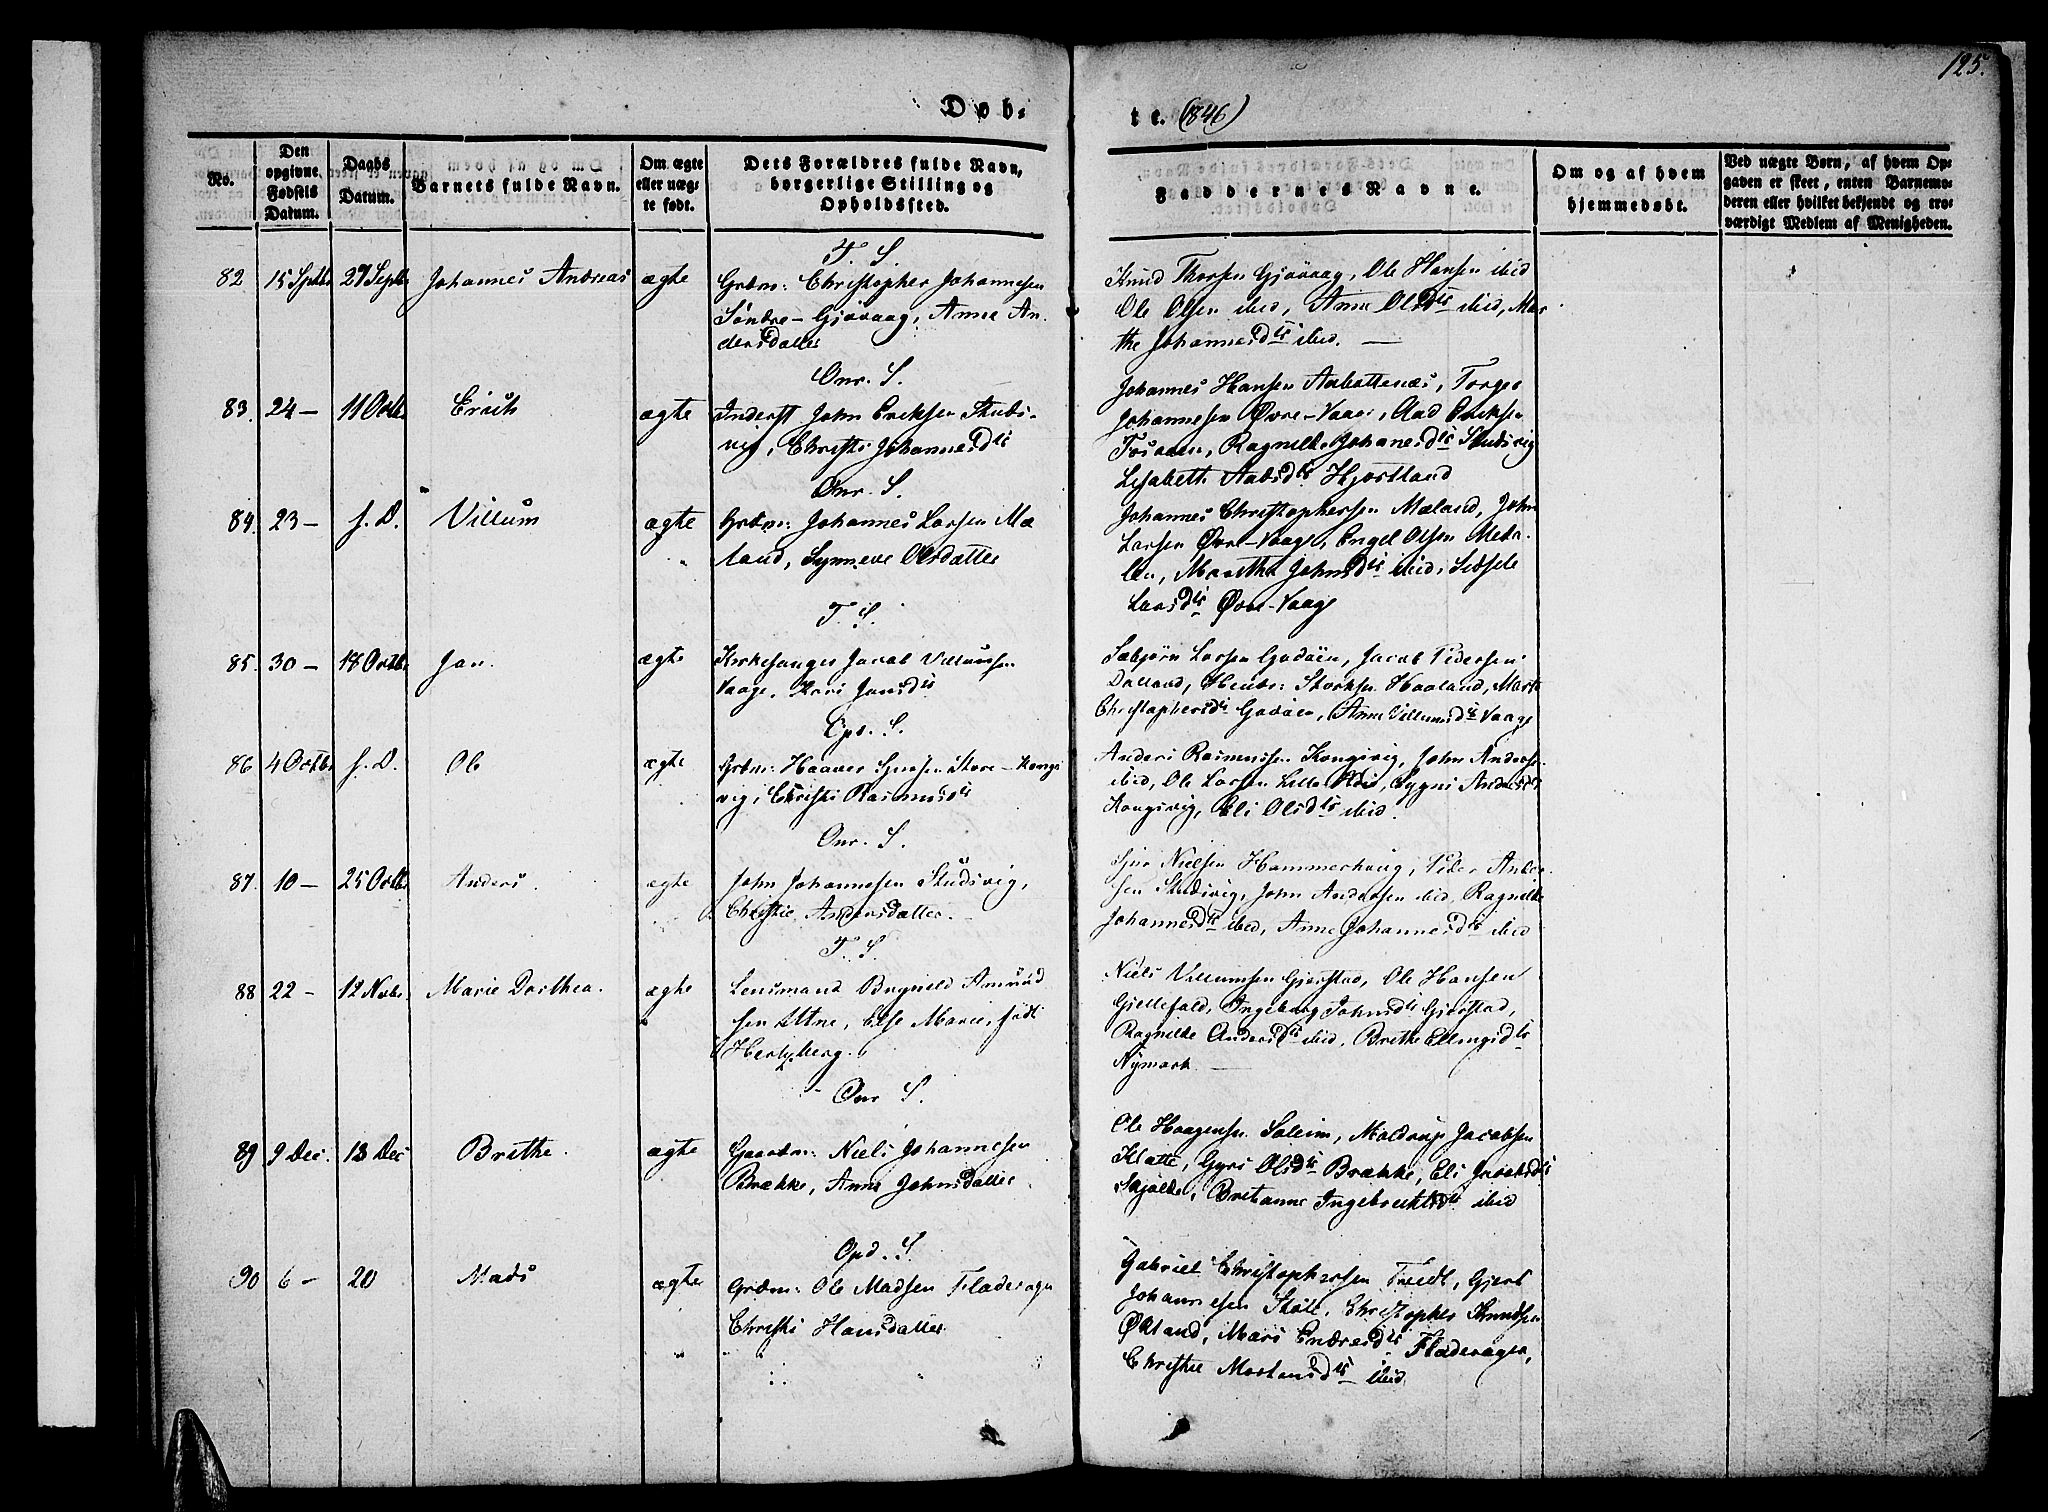 125.
Døb-
te. (1846)
No.
Den opgivne Fødsels Datum.
Daabs Datum.
Barnets fulde Navn.
Om ægte eller uægte født.
Dets Forældres fulde Navn, borgerlige Stilling og Opholdssted.
Faddernes Navne.
Om og af hvem hjemmedøbt.
Ved uægte Børn, af hvem Opgaven er skeet, enten Barnemoderen eller hvilket bekjendt og troværdigt Medlem af Menigheden.
T. S.
82 15 Septbr 27 Septbr Johannes Andreas ægte Grdm: Christopher Johannesen
Søndre-Gjøvaag, Anna An-
dersdatter
Knud Thorsen Gjøvaag, Ole Hansen ibid
Ole Olsen ibid, Anne Olsdtr ibid, Mar-
the Johannesdtr ibid.
Onr. S.
83. 24 – 11 Octbr Erich ægte Inderst John Eriksen Studs-
vig, Christi Johannesdtr
Johannes Hansen
Johannesen Øvre-Vaage,
Ragnilde Johanesdtr Studsvig
Lisabeth Hjortland
Onr. S.
84. 23 – s. D. Villum ægte Grdm: Johannes Larsen Mæ-
land, Synneve Olsdatter
Johannes Christophersen Mæland, John
Larsen Øvre-Vaage, Engel Olsen
Marthe Johnsdtr ibid,
Larsdtr Øvre-Vaage
T. S.
85. 30 – 18 Octbr Jan. ægte Kirkesanger Jacob Villumsen
Vaage, Kari Jansdtr
Sæbjørn Larsen Godøen, Jacob Pedersen
Dalland, Haaland, Marte
Christophersdtr Godøen, Anne Villumsdtr Vaage
Opd. S.
86 4 Octbr s. D. Ole ægte Grdm: Haaver Sjursen Store-Kongs
vig, Christi Rasmusdtr
Anders Rasmussen Kongsvig, John Anderse
ibid, Ole Larsen Lille
Kongsvig, Eli Olsdtr ibid.
Onr. S.
87. 10 – 25 Octbr Anders. ægte John Johannesen Studsvig,
Christie Andersdatter.
Sjur Nielsen Hammerhoug, Peder Ander-
sen Studsvig, John Andersen ibid, Ragnilde
Johannesdtr ibid, Anne Johannesdtr ibid
T. S.
88 22 – 12 Novbr Marie Dorthea. ægte Lensmand Amund
sen Utne, Else Marie, født
Hertzberg.
Niels Villumsen Gjerstad, Ole Hansen
Gjellefald, Ingeborg Johnsdtr Gjerstad,
Ragnilde Andersdtr ibid, Brithe Ellingsdtr
Nymark.
Onr S.
89 9 Dec. 13 Dec Brithe. ægte Gaardm: Niels Johannesen
Brække, Anna Johnsdatter
Ole Haagensen Soleim, Jacobsen
Klatte, Gyri Olsdtr Brække, Eli Jacobsdtr
Skjelde, Britanne Ingebrektsdtr ibid
Opd. S.
90 6 – 20 Mads ægte Grdm: Ole Madsen Fladerager
Christi Hansdatter
Gabriel Christophersen Tveidt, Gjert
Johannesen Støle, Christopher Knudsen
Økland, Mari Fladerager,
Christie Mortensdtr ibid.